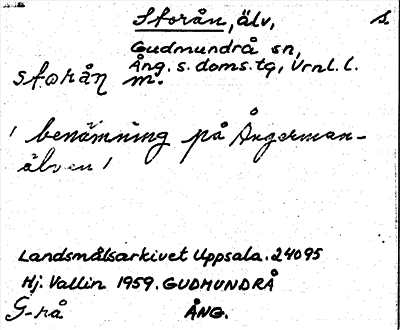 Storån, älv, s.
Gudmundrå sn,
Ång. s. doms.tg, Vrnl. l.
storån m.
/ benämning på Ångerman-
älven /
Landsmålsarkivet Uppsala. 24095
Hj. Vallin 1959. GUDMUNDRÅ
G-rå ÅNG.